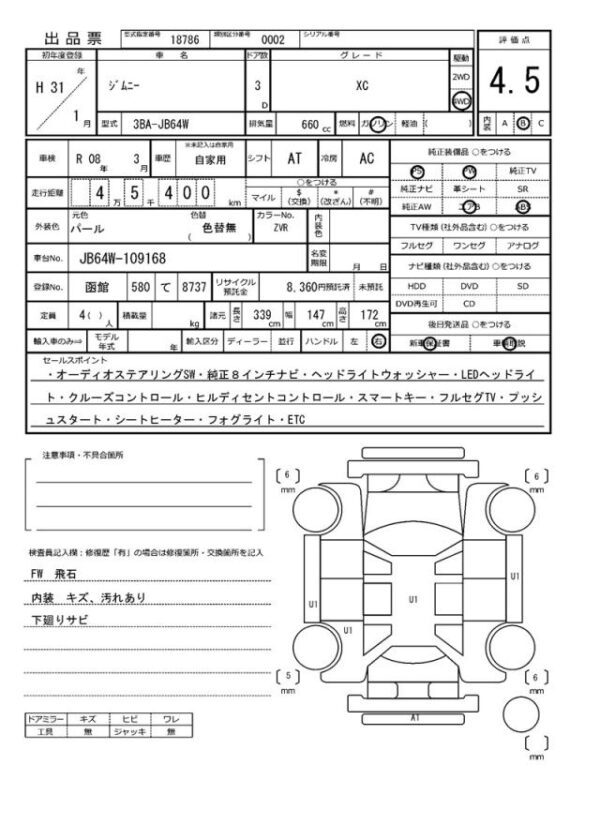 出品票 型式指定番号 18786 類別区分番号 0002 シリアル番号
評価点
初年度登録 車名 ドア数 グレード 駆動
H 31 年 1 月 ジムニー 3 D XC 2WD 4WD
4.5
型式 3BA-JB64W 排気量 660 cc 燃料 ガソリン 軽油 ( )
内装 A B C
車検 R 08 年 3 月 車歴 ※未記入は自家用 自家用 シフト AT 冷房 AC
純正装備品 ○をつける
PS PW 純正TV
走行距離 4 万 5 千 4 0 0 km ○をつける マイル $ (交換) * (改ざん) # (不明)
純正ナビ 革シート SR
純正AW エアB ABS
外装色 元色 パール 色替 ( 色替無 ) カラーNo. ZVR 内装色
TV種類 (社外品含む) ○をつける
フルセグ ワンセグ アナログ
車台No. JB64W-109168 名変期限 月 日
ナビ種類 (社外品含む) ○をつける
登録No. 函館 580 て 8737 リサイクル預託金 8,360円預託済 未預託
HDD DVD SD
DVD再生可 CD
定員 4 ( ) 人 積載量 kg 諸元 長さ 339 cm 幅 147 cm 高さ 172 cm
後日発送品 ○をつける
輸入車のみ⇒ モデル年式 年 輸入区分 ディーラー 並行 ハンドル 左 右
新車保証書 車輌取説
セールスポイント
・オーディオステアリングSW・純正8インチナビ・ヘッドライトウォッシャー・LEDヘッドライ
ト・クルーズコントロール・ヒルディセントコントロール・スマートキー・フルセグTV・プッシ
ュスタート・シートヒーター・フォグライト・ETC
注意事項・不具合箇所
検査員記入欄:修復歴「有」の場合は修復箇所・交換箇所を記入
FW 飛石
内装 キズ、汚れあり
下廻りサビ
ドアミラー キズ ヒビ ワレ
工具 無 ジャッキ 無
6
mm
6
mm
U1
U1
U1
U1
5
mm
6
mm
A1
mm